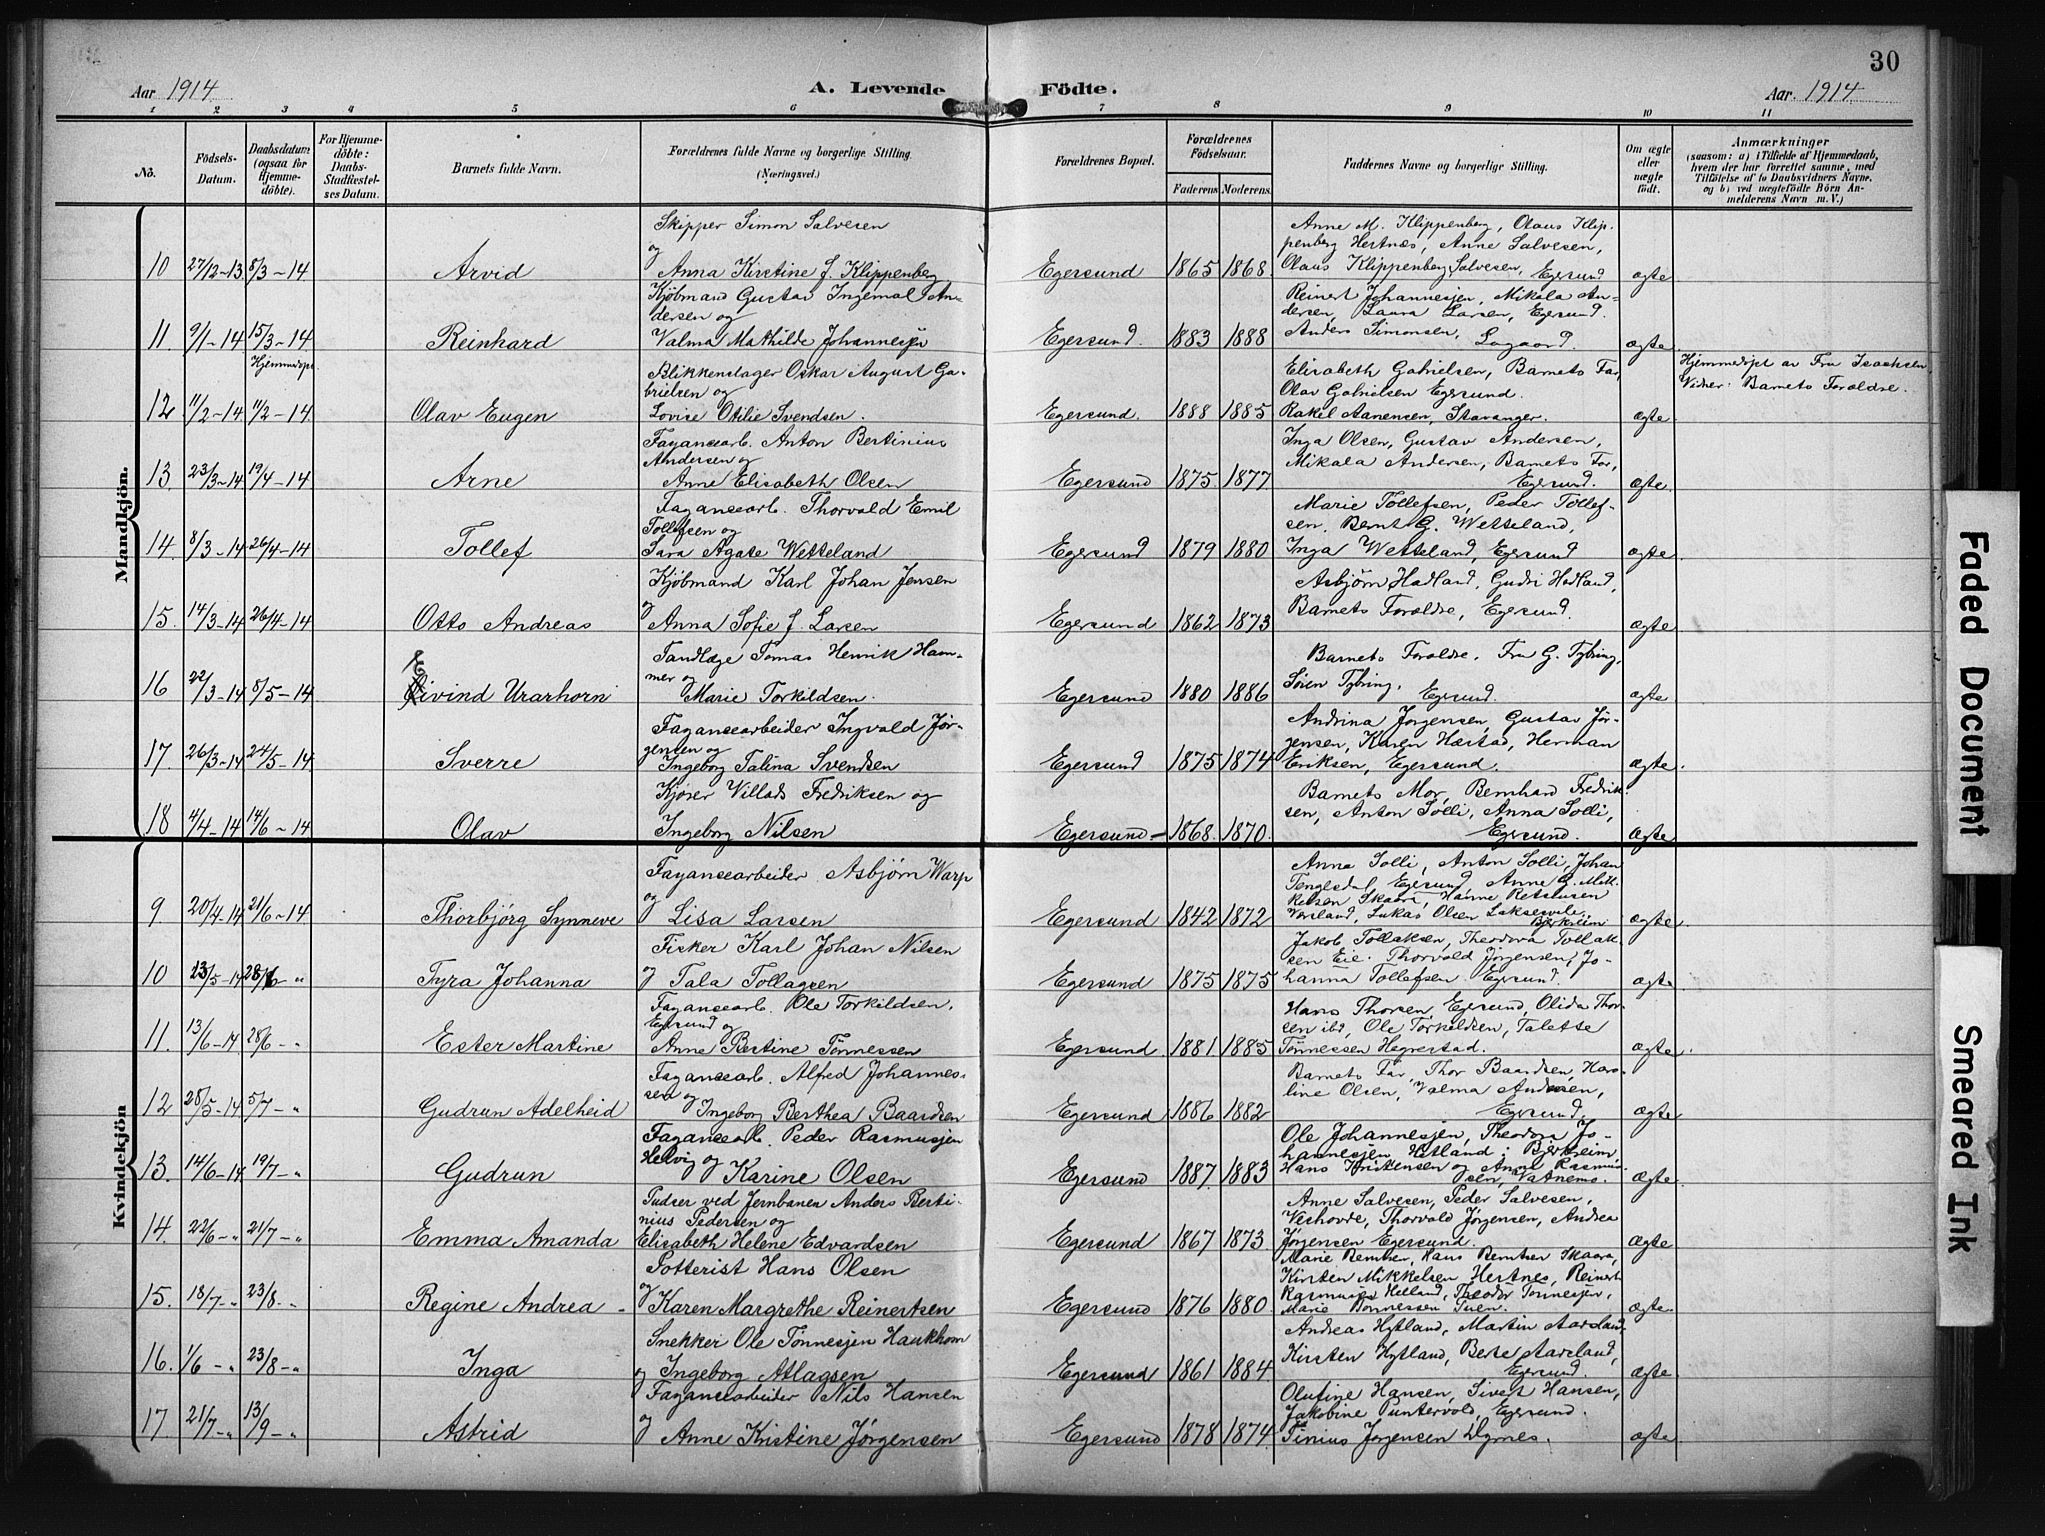 30
Aar 1914 A. Levende Födte. Aar 1914
1 2 3 4 5 6 7 8 9 10 11
No. Födsels-Datum. Daabsdatum (ogsaa for Hjemme-döbte). For Hjemme-döbte: Daabs-Stadfæstel-ses Datum. Barnets fulde Navn. Forældrenes fulde Navne og borgerlige Stilling. (Næringsvei.) Forældrenes Bopæl. Forældrenes Födselsaar. Faderens Moderens. Faddernes Navne og borgerlige Stilling. Om ægte eller uægte födt. Anmærkninger (saasom: a) i Tilfælde af Hjemmedaab, hvem der har forrettet samme, med Tilföielse af to Daabsvidners Navne, og b) ved uægtefödte Börn An-melderens Navn m. V.)
Mandkjön.
Skipper Simon Salvesen
og
10 27/12-13 8/3-14 Arvid Anna Kirstine f. Klippenberg Egersund 1865 1868
Anne M. Klippenberg, Olaus Klip-
penberg Hestnæs, Anne Salvesen,
Olaus Klippenberg Salvesen, Egersund ægte
Kjøbmand Gustav Ingemal An-
dersen og
11. 9/1-14 15/3-14 Reinhard Valma Mathilde Johannesen Egersund. 1883 1888
Reinert Johannesjen, Mikala An-
dersen, Laura Larsen, Egersund.
Anders Simonsen, Lagaard. ægte
Hjemmedøpt
Blikkenslager Oskar August Ga-
brielsen og
12 11/2-14 11/2-14. Olav Eugen Lovise Otilie Svendsen. Egersund. 1888 1885
Elisabeth Gabrielsen, Barnets Far,
Olav Gabrielsen Egersund.
Rakel Aanensen, Stavanger. ægte
Hjemmedøpt av Fru Isachsen
Vidner: Barnets Forældre.
Fayancearb. Anton Bertinius
Andersen og
13. 23/3-14 19/4-14 Arne Anne Elisabeth Olsen Egersund 1875 1877
Inga Olsen, Gustav Andersen,
Mikala Andersen, Barnets Far,
Egersund. ægte
Fayancearb. Thorvald Emil
Tollefsen og
14. 8/3-14 26/4-14 Tollef Sara Agate Wetteland Egersund 1879 1880
Marie Tollefsen, Peder Tollef-
sen, Bernt G. Wetteland,
Inga Wetteland, Egersund ægte
Kjøbmand Karl Johan Jensen
og
15. 14/3-14 26/4-14 Otto Andreas Anna Sofie f. Larsen Egersund 1862 1873
Asbjørn Hadland, Gudri Hadland,
Barnets Forældre, Egersund. ægte
Tandlæge Tomas Henrik Ham-
mer og
16 22/3-14 8/5-14 Eivind Urarhorn Marie Torkildsen. Egersund 1880 1886
Barnets Forældre, Fru G. Tybring,
Søren Tybring, Egersund. ægte
Fayancearbeider Ingvald Jør-
gensen og
17. 26/3-14 24/5-14 Sverre Ingeborg Talina Svendsen Egersund 1875 1874
Andrina Jørgensen, Gustav Jør-
gensen, Karen Hæstad, Herman
Eriksen, Egersund. ægte.
Kjører Villads Fredriksen og
18 4/4-14 14/6-14 Olav Ingeborg Nilsen Egersund 1868 1870.
Barnets Mor, Bernhard Fredrik-
sen, Anton Solli, Anna Solli,
Egersund. ægte
Kvindekjön
Fayancearbeider Asbjørn Warp
og
9 20/4-14 21/6-14 Thorbjørg Synneve Lisa Larsen Egersund 1842 1872
Anna Solli, Anton Solli, Johan
Tengesdal Egersund, Anne G. Mik-
kelsen Skaara, Hanne
Lukas Olsen ægte
Fisker Karl Johan Nilsen
10 23/5-14 28/6 " Tyra Johanna og Tala Tollagsen Egersund 1875 1875
Jakob Tollaksen, Theodora Tollak-
sen Eie. Thorvald Jørgensen, Jo-
hanna Tollefsen Egersund. ægte
Fayancearb. Ole Torkildsen,
Egersund og
11. 13/6-14 28/6-" Ester Martine Anne Bertine Tønnessen Egersund 1881 1885
Hans Thorsen, Egersund, Olida Thor-
sen ibd, Ole Torkildsen, Talette
Tønnessen Hegrestad. ægte.
Fayancearb. Alfred Johannes-
sen og
12 28/5-14 5/7-" Gudrun Adelheid Ingeborg Berthea Baardsen Egersund 1886 1882
Barnets Far, Thor Baardsen, Karo-
line Olsen, Valma Andersen,
Egersund. ægte
Fayancearb. Peder Rasmusjen
Helvig og
13. 14/6-14. 19/7-" Gudrun Karine Olsen Egersund 1887. 1883
Ole Johannesjen, Theodora Jo-
hannesjen Hetland, Bjerkreim
Hans Kristensen og Anne Rasmus-
sen, Vatnemo. ægte
Pudser ved Jernbanen Anders Berti-
nius Pedersen og
14. 22/6-" 21/7-" Emma Amanda Elisabeth Helene Edvardsen Egersund 1867 1873
Anne Salvesen, Peder Salvesen,
Veshovde, Thorvald Jørgensen, Andrea
Jørgensen Egersund. ægte
Potterist Hans Olsen
og
15. 18/7-" 23/8-" Regine Andrea Karen Margrethe Reinertsen Egersund 1876 1880
Marie Berntsen, Hans Berntsen Skaara,
Kirsten Mikkelsen Hestnes, Reinert
Rasmusjen Helland, Theodor Tønnesjen,
Marie Tønnessen Tuen. ægte.
Snekker Ole Tønnesjen Haukhom
16. 1/6-" 23/8-" Inga og Ingeborg Atlagsen Egersund 1861 1884
Andreas Hytland, Martin Aarsland,
Kirsten Hytland, Berte Aarsland,
Egersund. ægte
Fayancearbeider Nils Hansen
og
17. 21/7-" 13/9-" Astrid Anne Kristine Jørgensen Egersund 1878 1874
Olufine Hansen, Sivert Hansen,
Jakobine Puntervold, Egersund.
Tinius Jørgensen Dyrnes. ægte
Faded Document
Smeared Ink